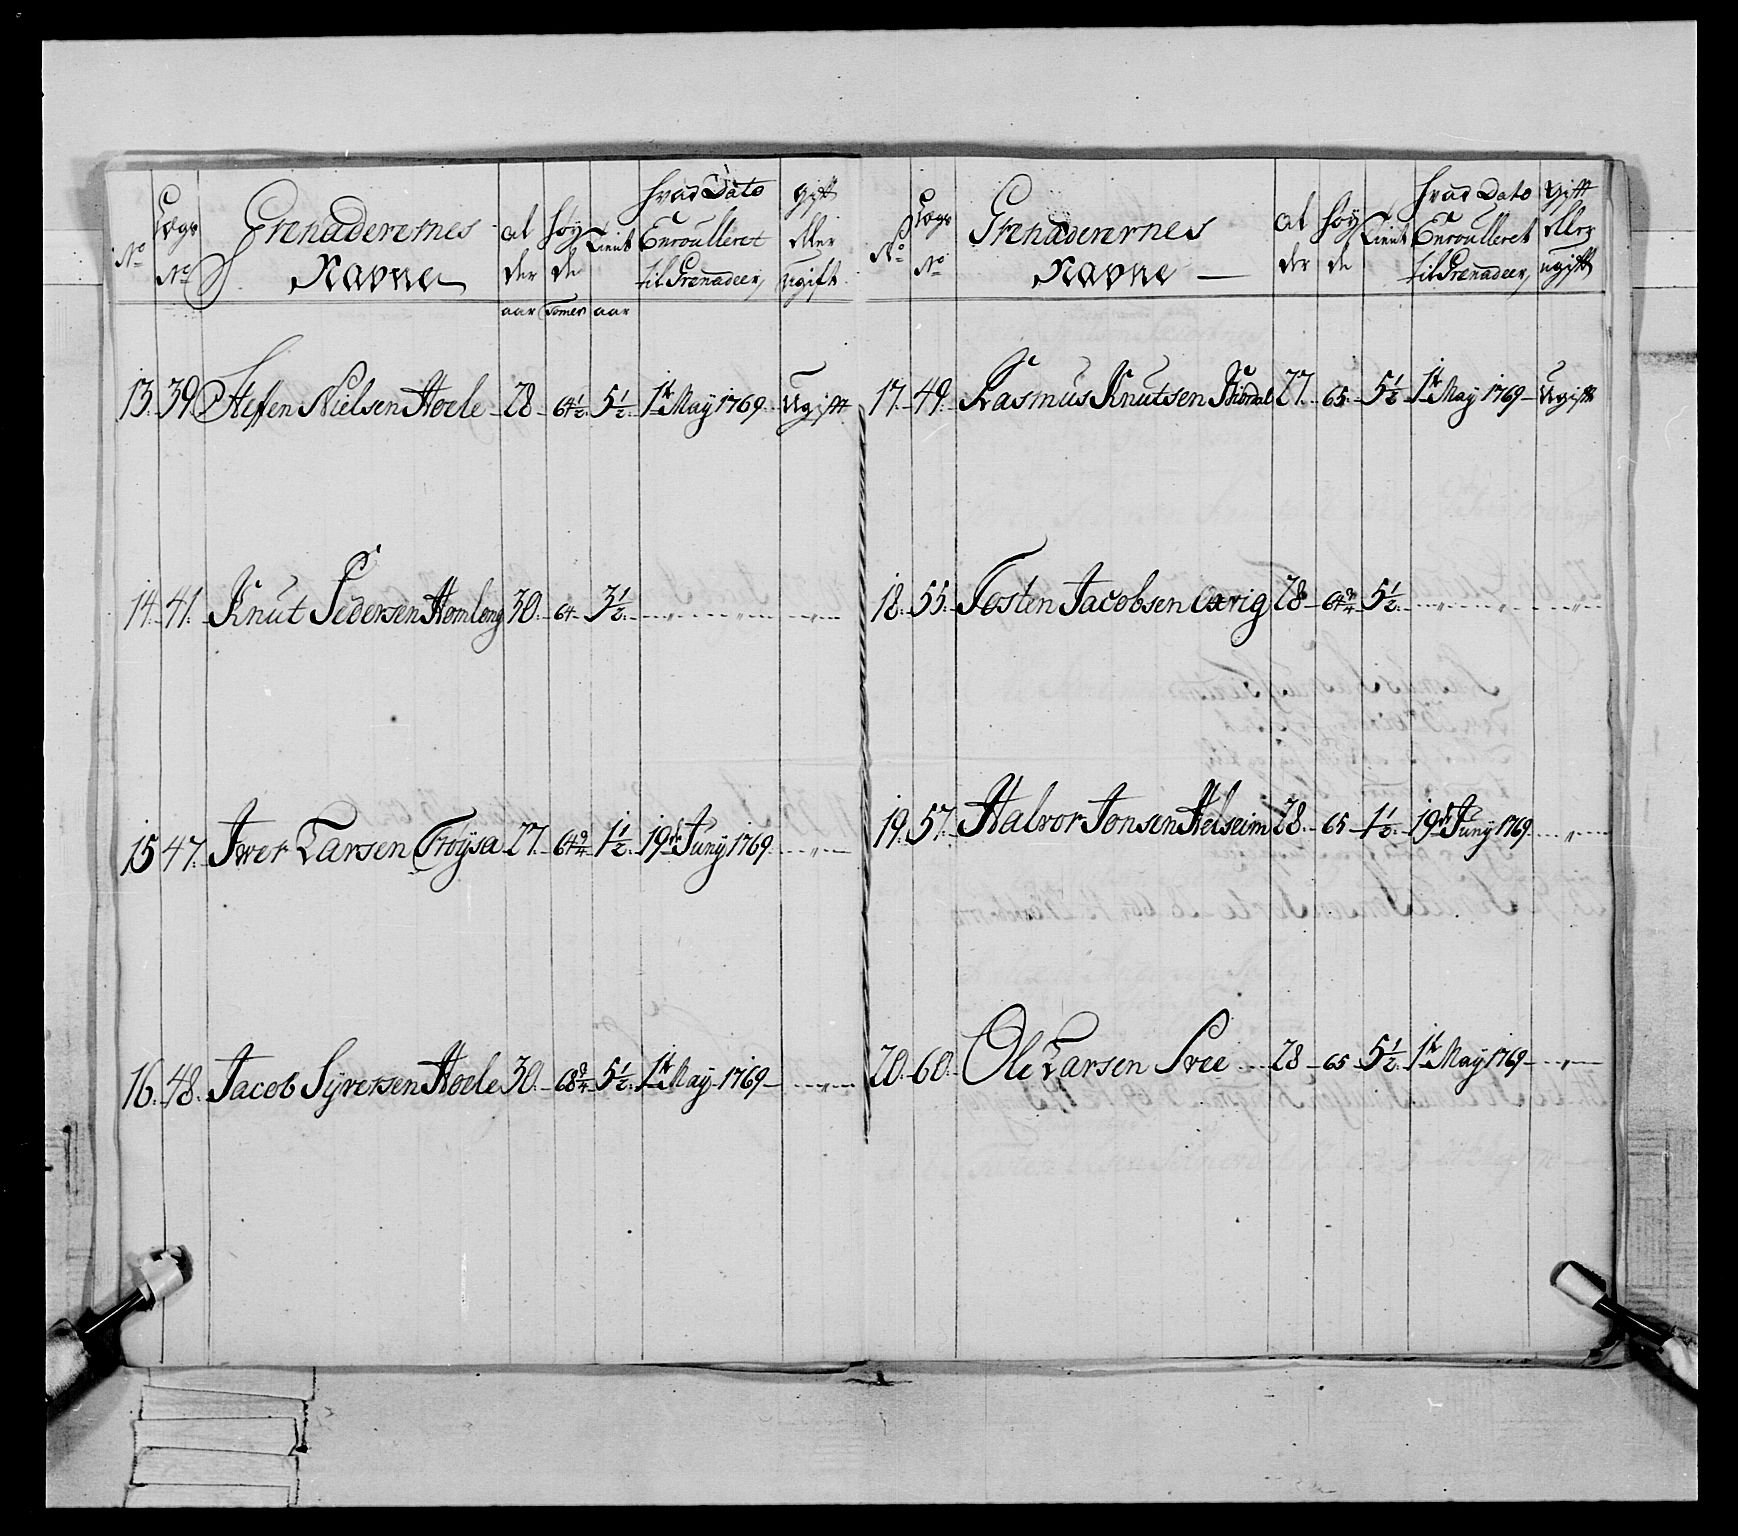 No Lægs No Grenaderernes Navne Alder Høyde Tient Hvad Dato Enroulleret til Grenadeer, gift eller ugift
aar Tomer aar
13. 39. Steffen Nielsen Hoele 28 64½ 5½ 1te May 1769. Ugift
14. 41. Knut Pedersen Homlong 30. 64 3½ " " "
15 47. Iwer Larsen Frøysa 27. 64¾ 1½ 19de Juny 1769. "
16. 48. Jacob Syversen Hoele 30. 68¾ 5½ 1te May 1769 "
No Lægs No Grenaderernes Navne Alder Høyde Tient Hvad Dato Enroulleret til Grenadeer, Gift eller ugift
17. 49. Rasmus Knutsen 27. 65. 5½ 1te May 1769 Ugift
18. 55. Tosten Jacobsen 28 64¾ 5½ " " "
19. 57. Halvor Jonsen Helseim 28. 65 1½ 19de Juny 1769. "
20. 60. Ole Larsen Svee 28 65 5½ 1te May 1769 "